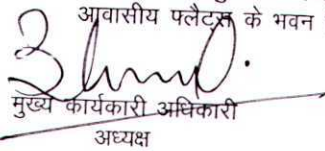 आवासीय फ्लैट्स के भवन
मुख्य कार्यकारी अधिकारी
अध्यक्ष